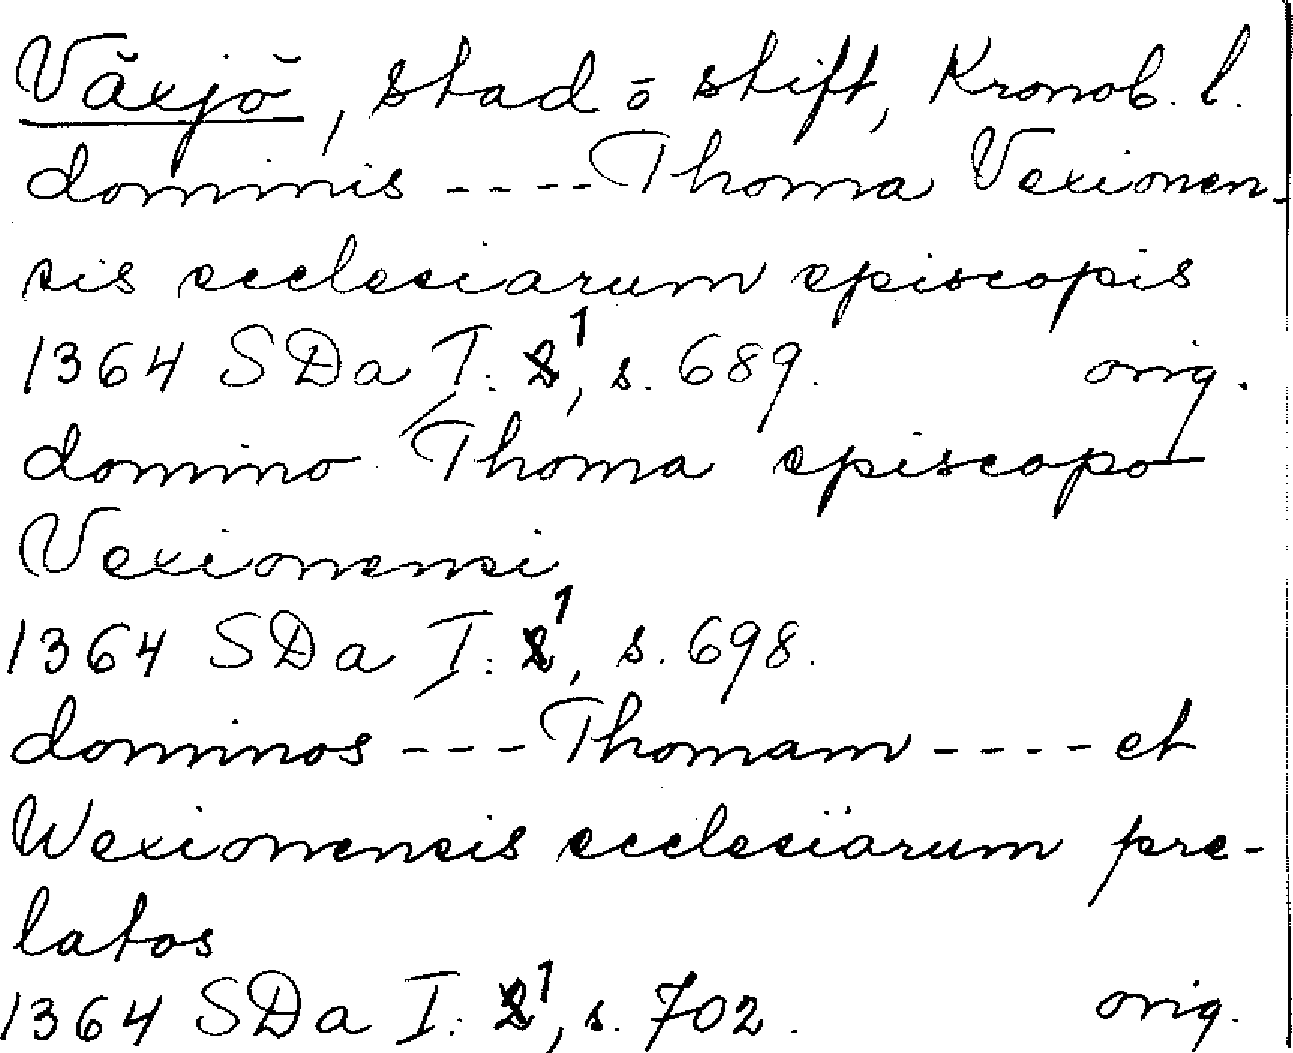 Växjö, stad ö stift, Kronob. l.
dominis ---- Thoma Vexionen-
sis ecclesiarum episcopis
1364 SDa I: 1, s. 689. orig.
domino Thoma episcopo
Vexionensi
1364 SDa I: 1, s. 698.
dominos --- Thomam ---- et
Wexionensis ecclesiarum pre-
latos
1364 SDa I: 1, s. 702. orig.